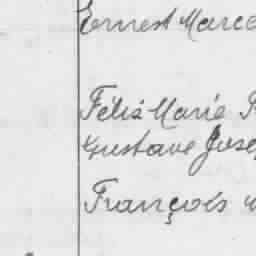 Ernest Marce
Félix Marie
Gustave Jose
François